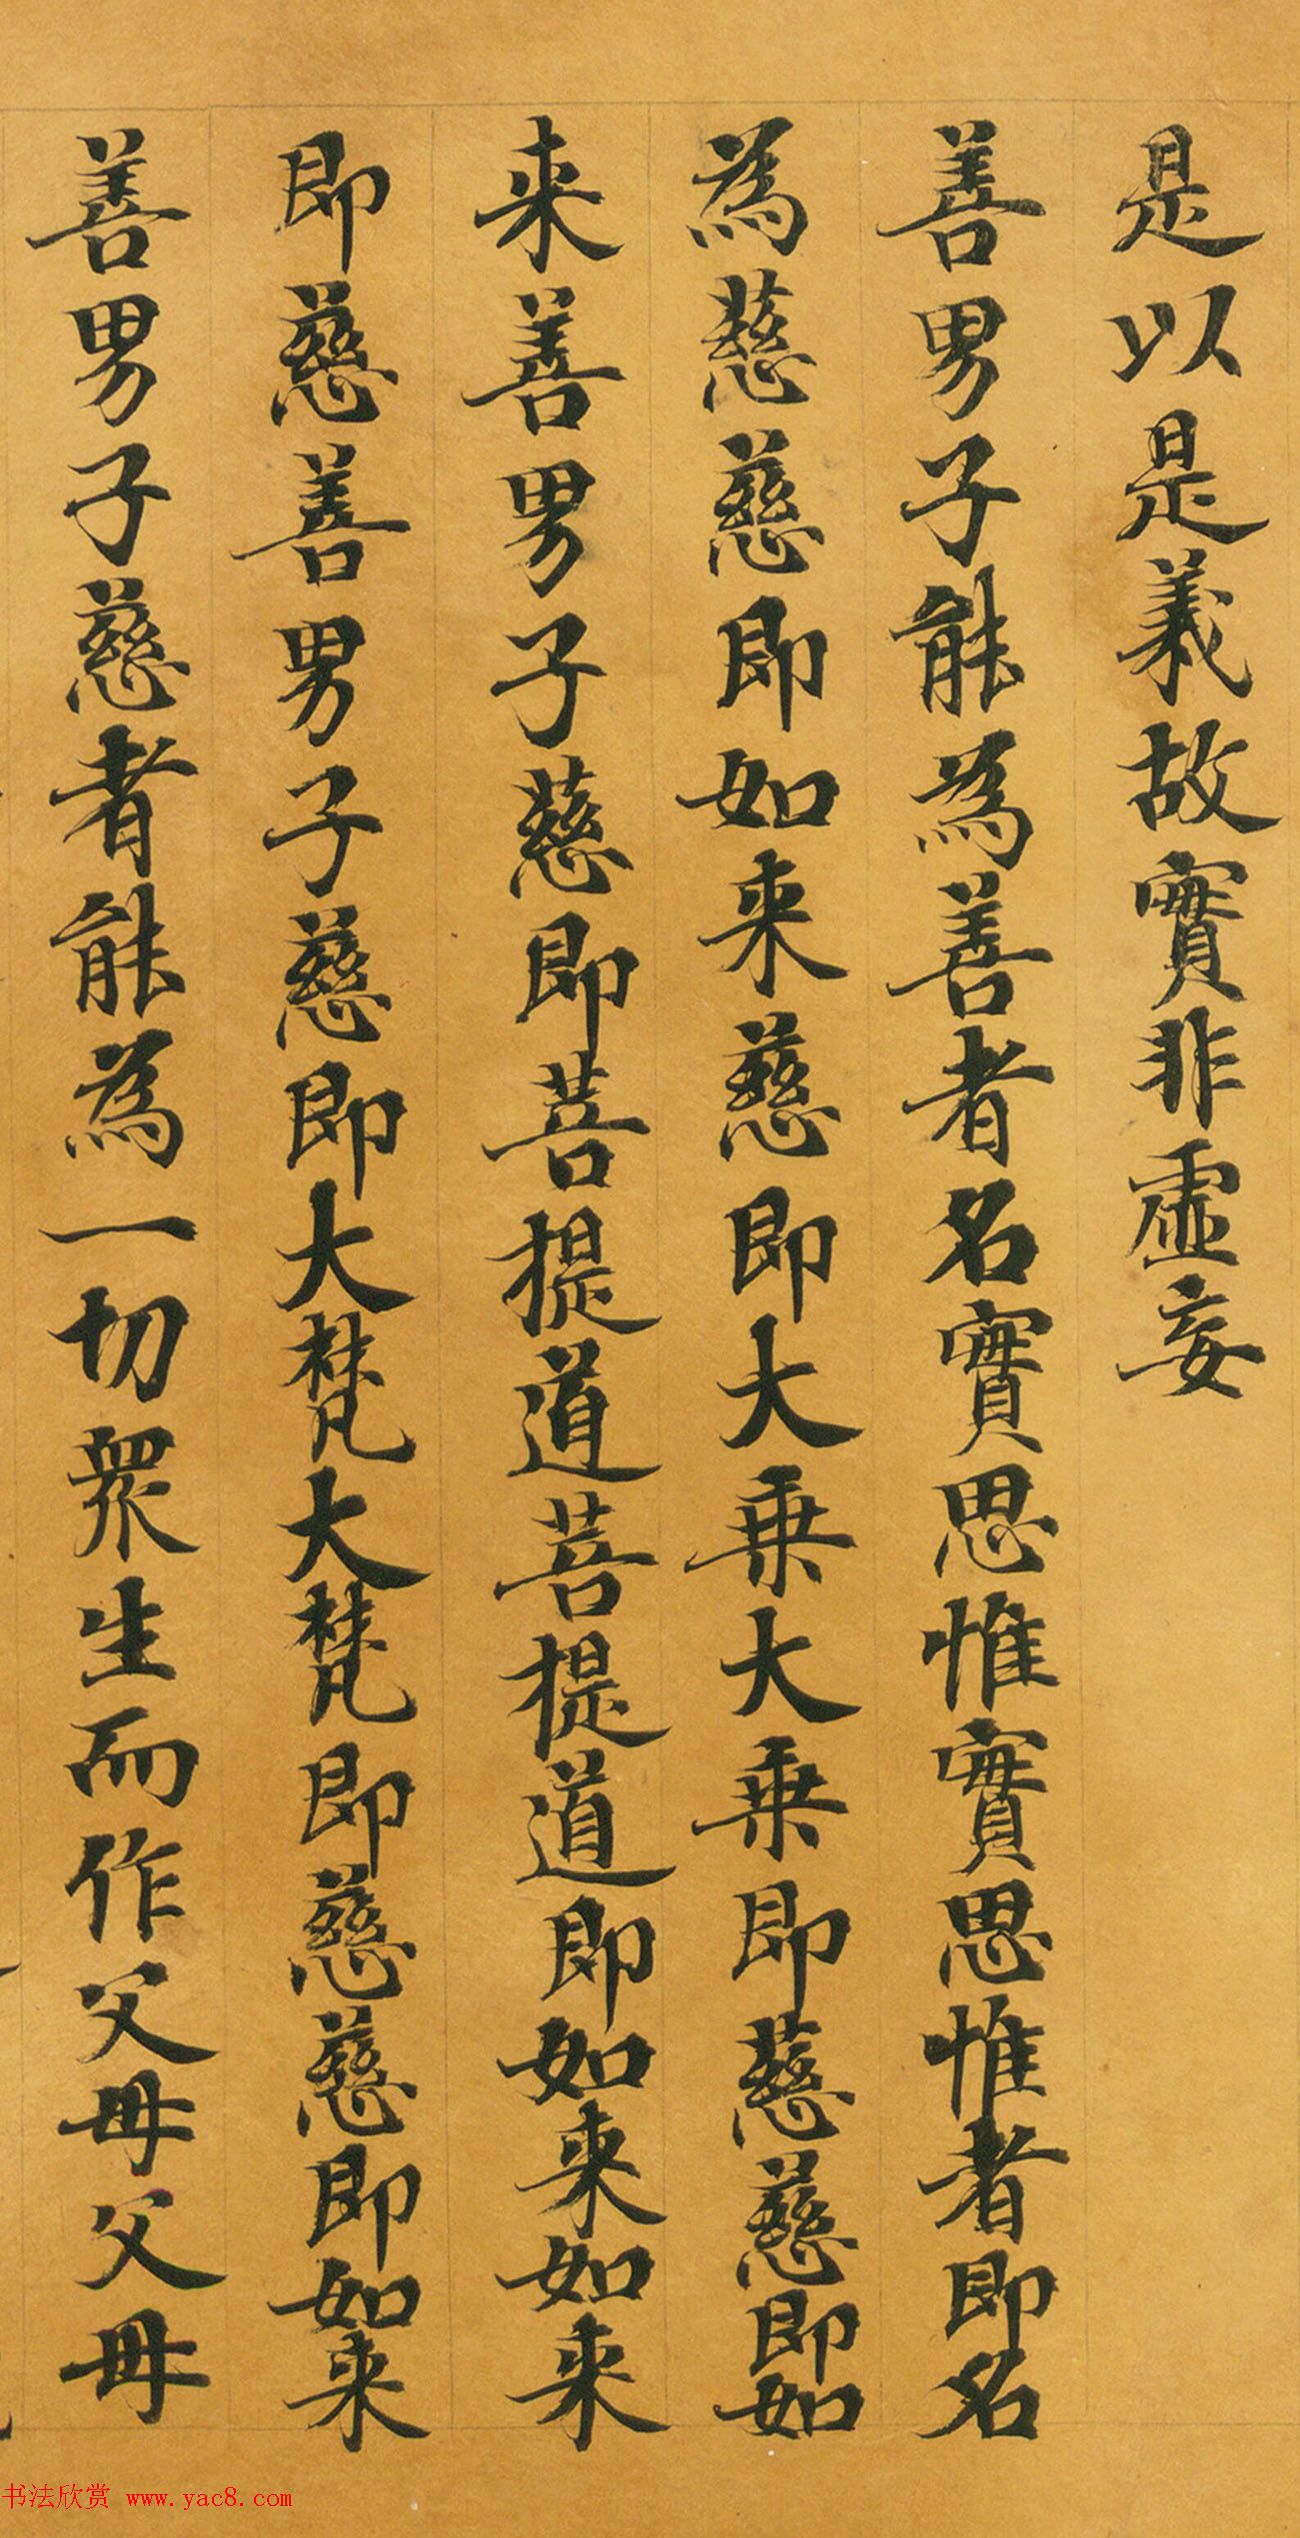 是以是義故實非虛妄
善男子能為善者名實思惟實思惟者即名
為慈慈即如来慈即大乗大乗即慈慈即如
来善男子慈即菩提道菩提道即如来如来
即慈善男子慈即大梵大梵即慈慈即如来
善男子慈者能為一切眾生而作父母父母
书法欣赏 www.yac8.com